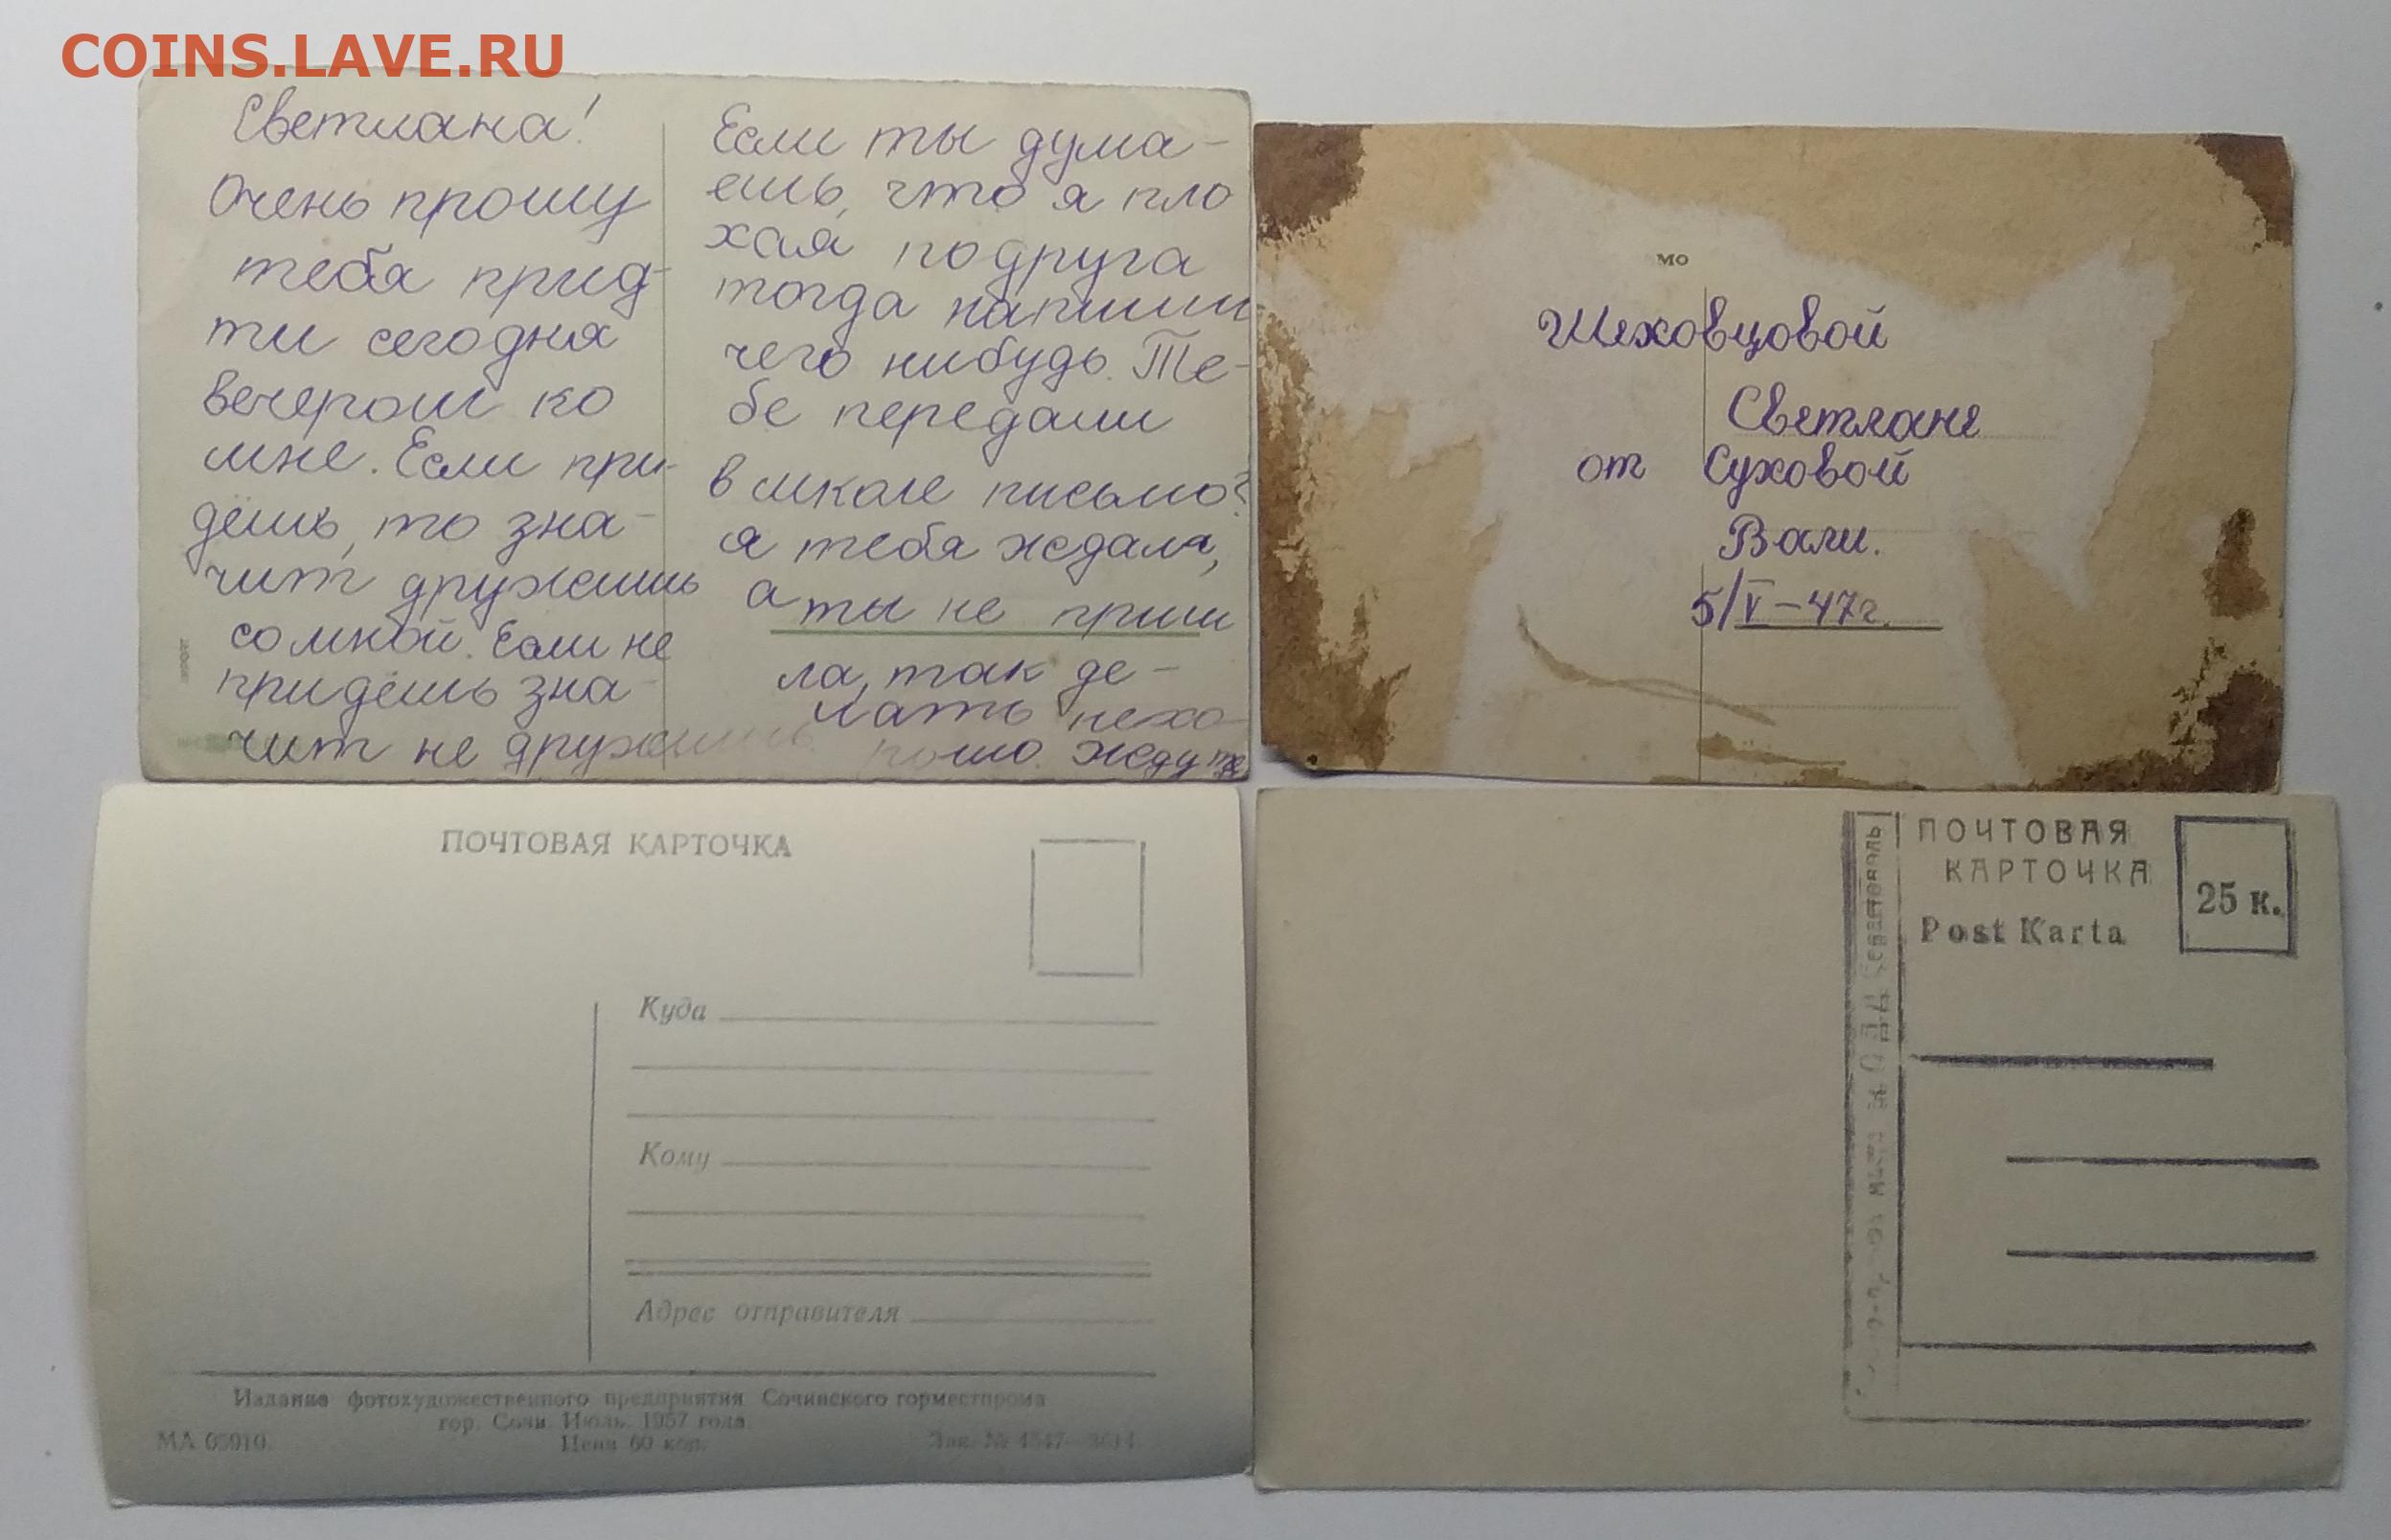 COINS.LAVE.RU
Светлана!
Очень прошу
тебя прид-
ти сегодня
вечером ко
мне. Если при-
дёшь, то зна-
чит дружишь
со мной. Если не
придёшь зна-
чит не дружишь
Если ты дума-
ешь, что я пло
хая подруга
тогда напиши
чего нибудь. Те-
бе передали
в школе письмо?
я тебя ждала,
а ты не приш
ла, так де-
лать нехо-
рошо. Жду
мо
Шеховцовой
Светлане
от Суховой
Вали.
5/V-47г.
ПОЧТОВАЯ КАРТОЧКА
Куда
Кому
Адрес отправителя
Издание фотохудожественного предприятия Сочинского горместпрома
гор. Сочи. Июль. 1957 года.
Цена 60 коп.
Зак. №
ПОЧТОВАЯ
КАРТОЧКА
Post Karta
25 к.
Севастополь